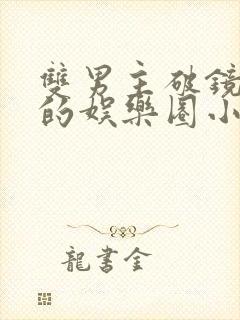 雙男主破鏡
的娛樂圈小
龍書金